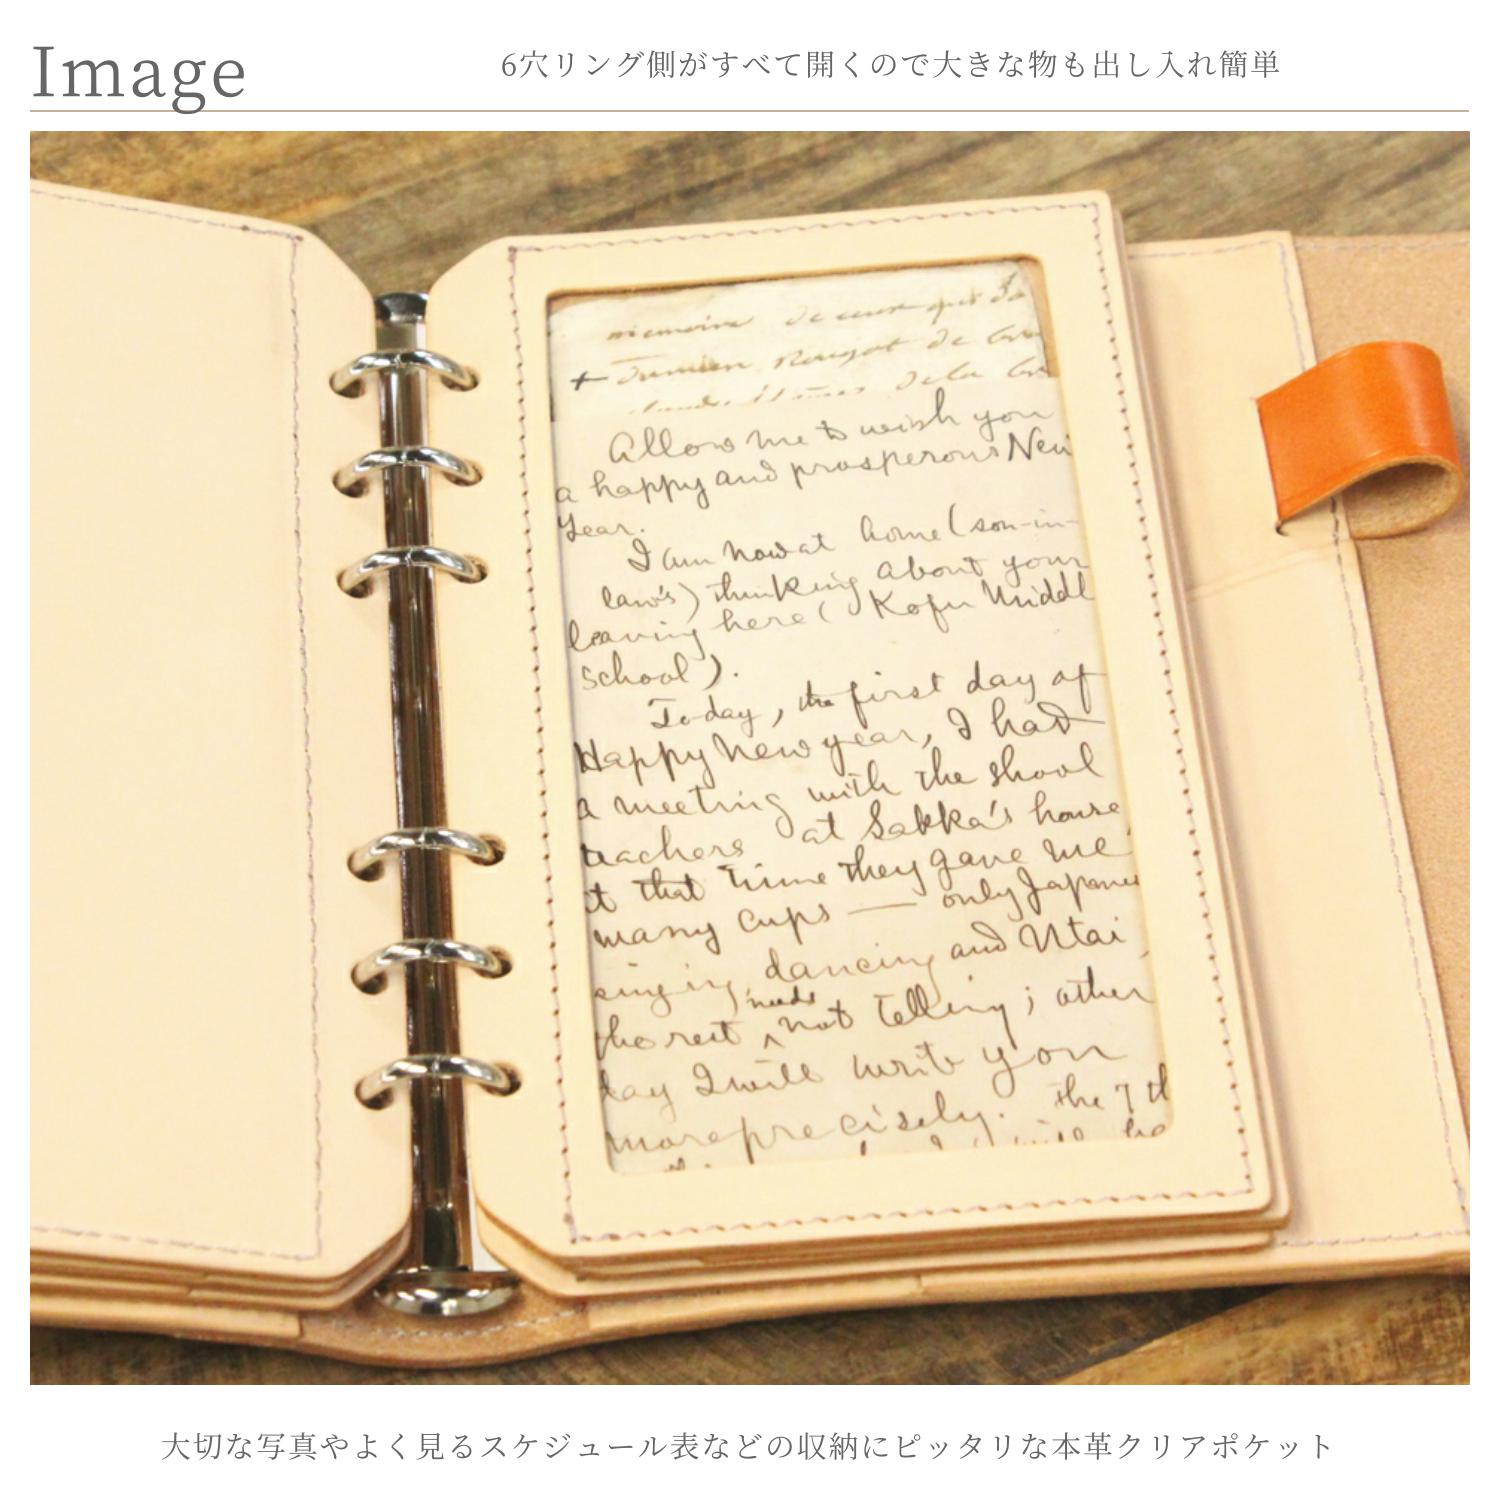 Image
6穴リング側がすべて開くので大きな物も出し入れ簡単
memoire de coeur qui
+ Damien Rougot de
de la
Allow me to wish you
a happy and prosperous New
Year.
I am now at home (son-in-
law's) thinking about your
leaving here ( Kofu Middl
School ).
To-day, the first day of
Happy New year, I had
a meeting with the shool
teachers at Sakka's house,
t that time they gave me
many cups — only Japane
singing, dancing and Utai,
the rest needs not telling ; other
day I will write you
more precisely. the 7 th
will be
大切な写真やよく見るスケジュール表などの収納にピッタリな本革クリアポケット